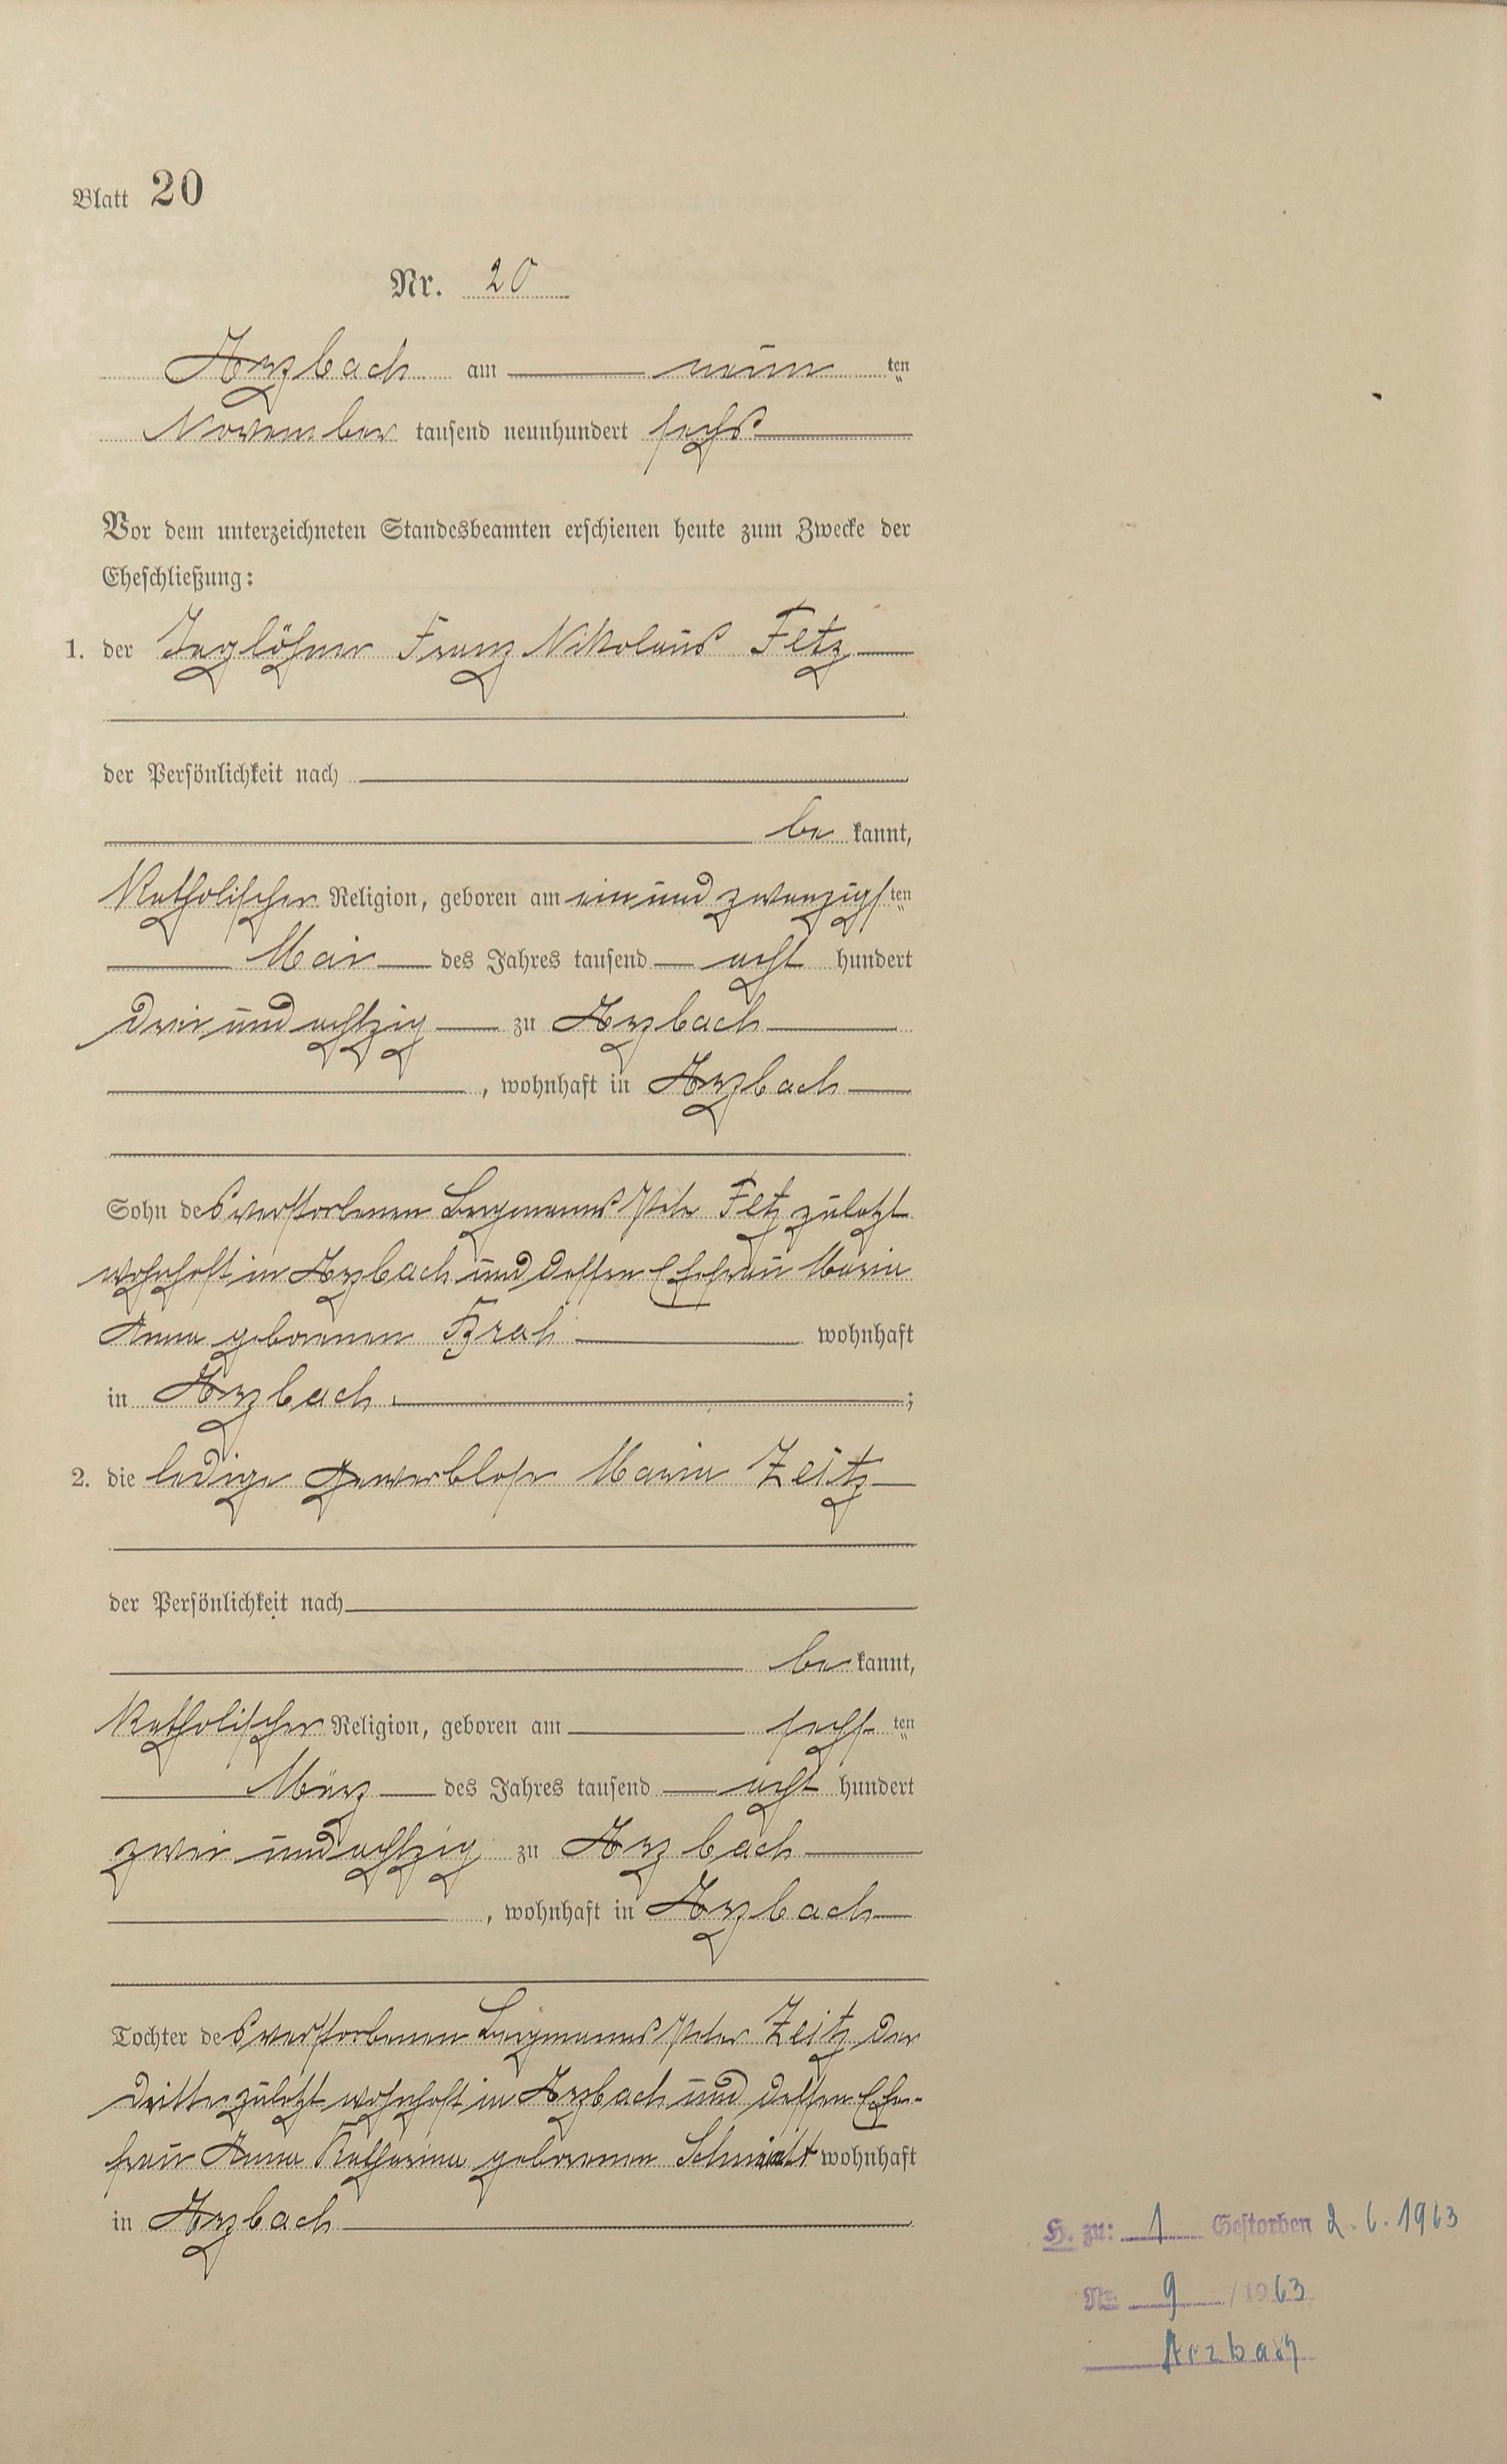 Blatt 20
Nr. 20
Arzbach am neun ten
November tausend neunhundert sechs
Vor dem unterzeichneten Standesbeamten erschienen heute zum Zwecke der
Eheschließung:
1. der Taglöhner Franz Nikolaus Fetz
der Persönlichkeit nach
be kannt,
katholischer Religion, geboren am ein und zwanzigs ten
Mai des Jahres tausend acht hundert
drei und achtzig zu Arzbach
, wohnhaft in Arzbach
Sohn des verstorbenen Bergmanns Peter Fetz zuletzt
wohnhaft in Arzbach und dessen Ehefrau Maria
Anna geborenen wohnhaft
in Arzbach ;
2. die ledige gewerblose Maria Zeitz
der Persönlichkeit nach
be kannt,
katholischer Religion, geboren am sechs ten
März des Jahres tausend acht hundert
zwei und achtzig zu Arzbach
, wohnhaft in Arzbach
Tochter des verstorbenen Bergmanns Peter Zeitz der
dritte zuletzt wohnhaft in Arzbach und dessen Ehe-
frau Anna Katharina geborenen Schmidt wohnhaft
in Arzbach
H. zu: 1 Gestorben 2.6.1963
Nr. 9 /1963
Arzbach